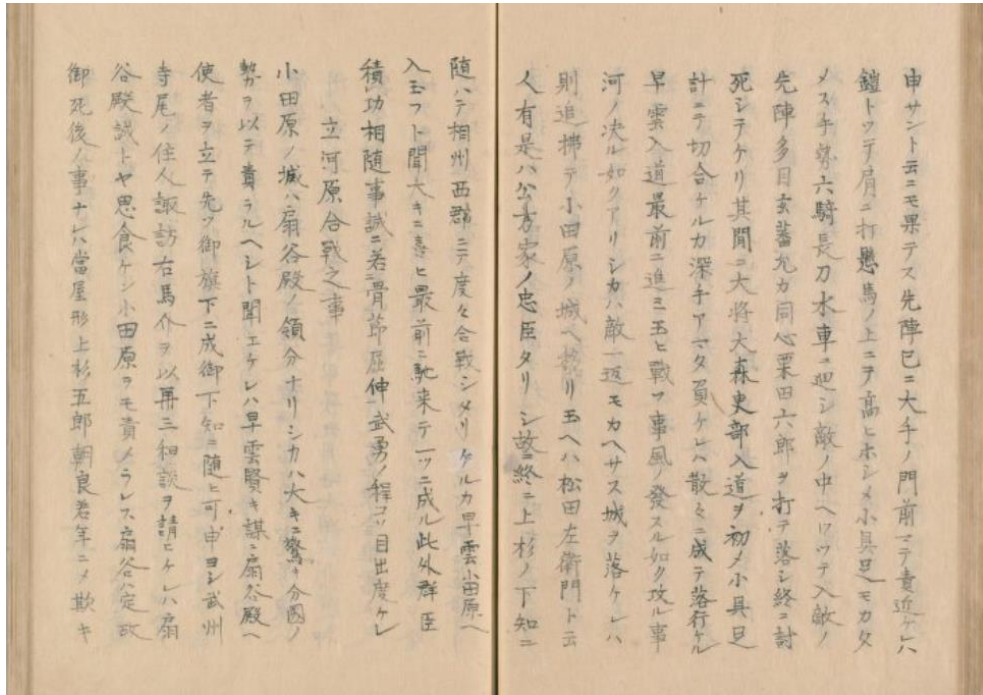 申サント云ニモ果テス先陣已ニ大手ノ門前マテ責近ケレハ
鎧トツテ肩ニ打懸馬ノ上ニテ高ヒホシメ小具足モカタ
メス手勢六騎長刀水車ニ廻シ敵ノ中ヘワツテ入敵ノ
先陣多目玄蕃允カ同心栗田六郎ヲ打テ落シ終ニ討
死シテケリ其間ニ大将大森吏部入道ヲ初メ小具足
計ニテ切合ケルカ深手アマタ負ケレハ散々ニ成テ落行ケル
早雲入道最前ニ進ミ玉ヒ戰フ事風ノ發スル如ク攻ル事
河ノ决ル如クアリシカハ敵一返モカヘサス城ヲ落ケレハ
則追拂テ小田原ノ城ヘ移リ玉ヘハ松田左衛門ト云
人有是ハ公方家ノ忠臣タリシ故ニ終ニ上杉ノ下知ニ
随ハテ相州西郡ニテ度々合戰シタリケルカ早雲小田原ヘ
入玉フト聞大キニ喜ヒ最前ニ馳来テ一ツニ成ル此外群臣
積功相随事誠ニ若骨節屈伸武勇ノ程コソ目出度ケレ
立河原合戰之事
小田原ノ城ハ扇谷殿ノ領分ナリシカハ大キニ驚キ分國ノ
勢ヲ以テ責ラルヘシト聞エケレハ早雲賢キ謀ニ扇谷殿ヘ
使者ヲ立テ先ツ御旗下ニ成御下知ニ随ヒ可申ヨシ武州
寺尾ノ住人諏訪右馬介ヲ以再三和談ヲ請ヒケレハ扇
谷殿誠トヤ思食ケン小田原ヲモ責メラレス扇谷ハ定政
御死後ノ事ナレハ當屋形上杉五郎朝良若年ニメ欺キ